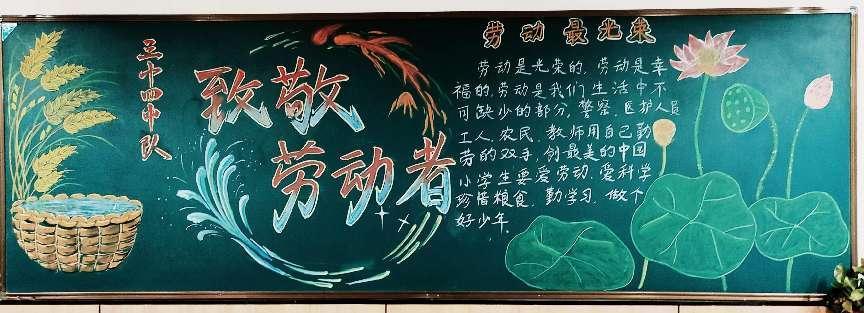 三十四中队
致敬
劳动者
劳动最光荣
劳动是光荣的，劳动是幸
福的，劳动是我们生活中不
可缺少的部分，警察、医护人员
工人、农民、教师用自己勤
劳的双手，创最美的中国
小学生要爱劳动，爱科学
珍惜粮食，勤学习，做个
好少年．